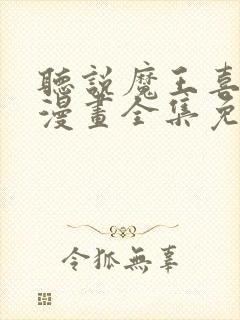 聽說魔王喜
漫畫全集免
令狐無辜